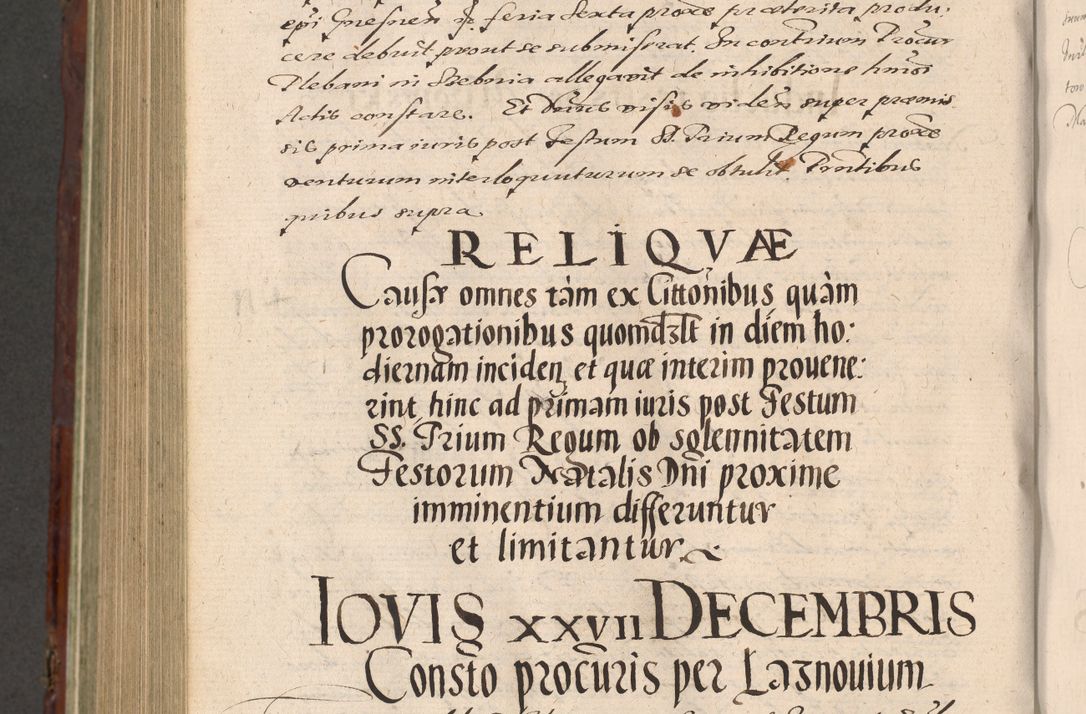 epi Gnesnen̄ q̄ feria Sexta proxe præterita produ:
cere debuit prout se submiserat. In contrium Procur
Plebani in Slebnia allegavit de inhibitione hmoi
Actis constare. Et Dnus visis viden super præmis
sis prima iuris post Festum SS. Trium Regum proxe
venturum interloquuturum se obtulit. Pntibus
quibus supra
RELIQVÆ
Causæ omnes tàm ex Cittonibus quàm
prorogationibus quomdzlt in diem ho:
diernam inciden et quæ interim provene:
rint hinc ad primam iuris post Festum
SS. Trium Regum ob solennitatem
Festorum Natalis Dni proxime
imminentium differuntur
et limitantur.
IOVIS XXVII DECEMBRIS
Consto procuris per Lagnovium